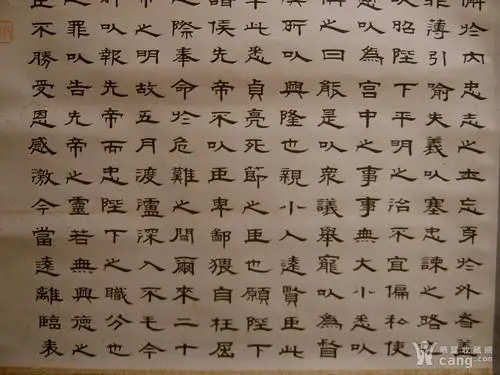 懈於內忠志之士忘身於外者蓋
菲薄引喻失義以塞忠諫之路也
以昭陛下平明之治不宜偏私使
悉以為宮中之事事無大小悉以
之曰能是以眾議舉寵以為督
漢所以興隆也親小人遠賢臣此
軍此悉貞亮死節之臣也願陛下
諸侯先帝不以臣卑鄙猥自枉屈
之際奉命於危難之間爾來二十
帝之明故五月渡瀘深入不毛今
所以報先帝而忠陛下之職分也
之罪以告先帝之靈若無興德之
臣不勝受恩感激今當遠離臨表
cang.com